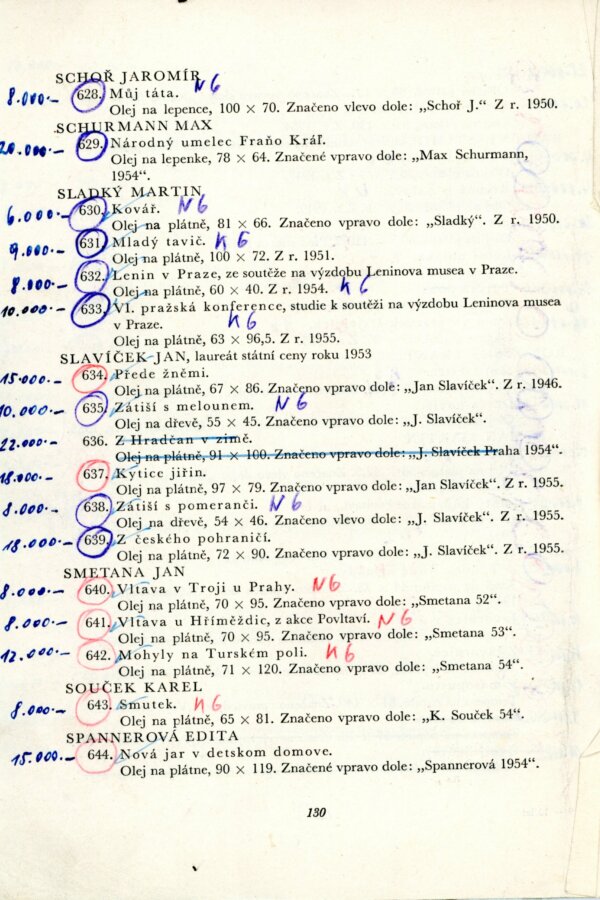 SCHOŘ JAROMÍR
8.000.- 628. Můj táta. N6
Olej na lepence, 100 × 70. Značeno vlevo dole: „Schoř J.“ Z r. 1950.
SCHURMANN MAX
20.000.- 629. Národný umelec Fraňo Kráľ.
Olej na lepenke, 78 × 64. Značené vpravo dole: „Max Schurmann,
1954“.
SLADKÝ MARTIN
6.000.- 630. Kovář. N6
Olej na plátně, 81 × 66. Značeno vpravo dole: „Sladký“. Z r. 1950.
9.000.- 631. Mladý tavič. K6
Olej na plátně, 100 × 72. Z r. 1951.
8.000.- 632. Lenin v Praze, ze soutěže na výzdobu Leninova musea v Praze.
Olej na plátně, 60 × 40. Z r. 1954. K6
10.000.- 633. VI. pražská konference, studie k soutěži na výzdobu Leninova musea
v Praze. K6
Olej na plátně, 63 × 96,5. Z r. 1955.
SLAVÍČEK JAN, laureát státní ceny roku 1953
15.000.- 634. Přede žněmi.
Olej na plátně, 67 × 86. Značeno vpravo dole: „Jan Slavíček“. Z r. 1946.
10.000.- 635. Zátiší s melounem. N6
Olej na dřevě, 55 × 45. Značeno vpravo dole: „J. Slavíček“.
22.000.- 636. Z Hradčan v zimě.
Olej na plátně, 91 × 100. Značeno vpravo dole: „J. Slavíček Praha 1954“.
18.000.- 637. Kytice jiřin.
Olej na plátně, 97 × 79. Značeno vpravo dole: „Jan Slavíček“. Z r. 1955.
8.000.- 638. Zátiší s pomeranči. N6
Olej na dřevě, 54 × 46. Značeno vlevo dole: „J. Slavíček“. Z r. 1955.
18.000.- 639. Z českého pohraničí.
Olej na plátně, 72 × 90. Značeno vpravo dole: „J. Slavíček“. Z r. 1955.
SMETANA JAN
8.000.- 640. Vltava v Troji u Prahy. N6
Olej na plátně, 70 × 95. Značeno vpravo dole: „Smetana 52“.
8.000.- 641. Vltava u Hříměždic, z akce Povltaví. N6
Olej na plátně, 70 × 95. Značeno vpravo dole: „Smetana 53“.
12.000.- 642. Mohyly na Turském poli. K6
Olej na plátně, 71 × 120. Značeno vpravo dole: „Smetana 54“.
SOUČEK KAREL
8.000.- 643. Smutek. K6
Olej na plátně, 65 × 81. Značeno vpravo dole: „K. Souček 54“.
SPANNEROVÁ EDITA
15.000.- 644. Nová jar v detskom domove.
Olej na plátne, 90 × 119. Značené vpravo dole: „Spannerová 1954“.
130